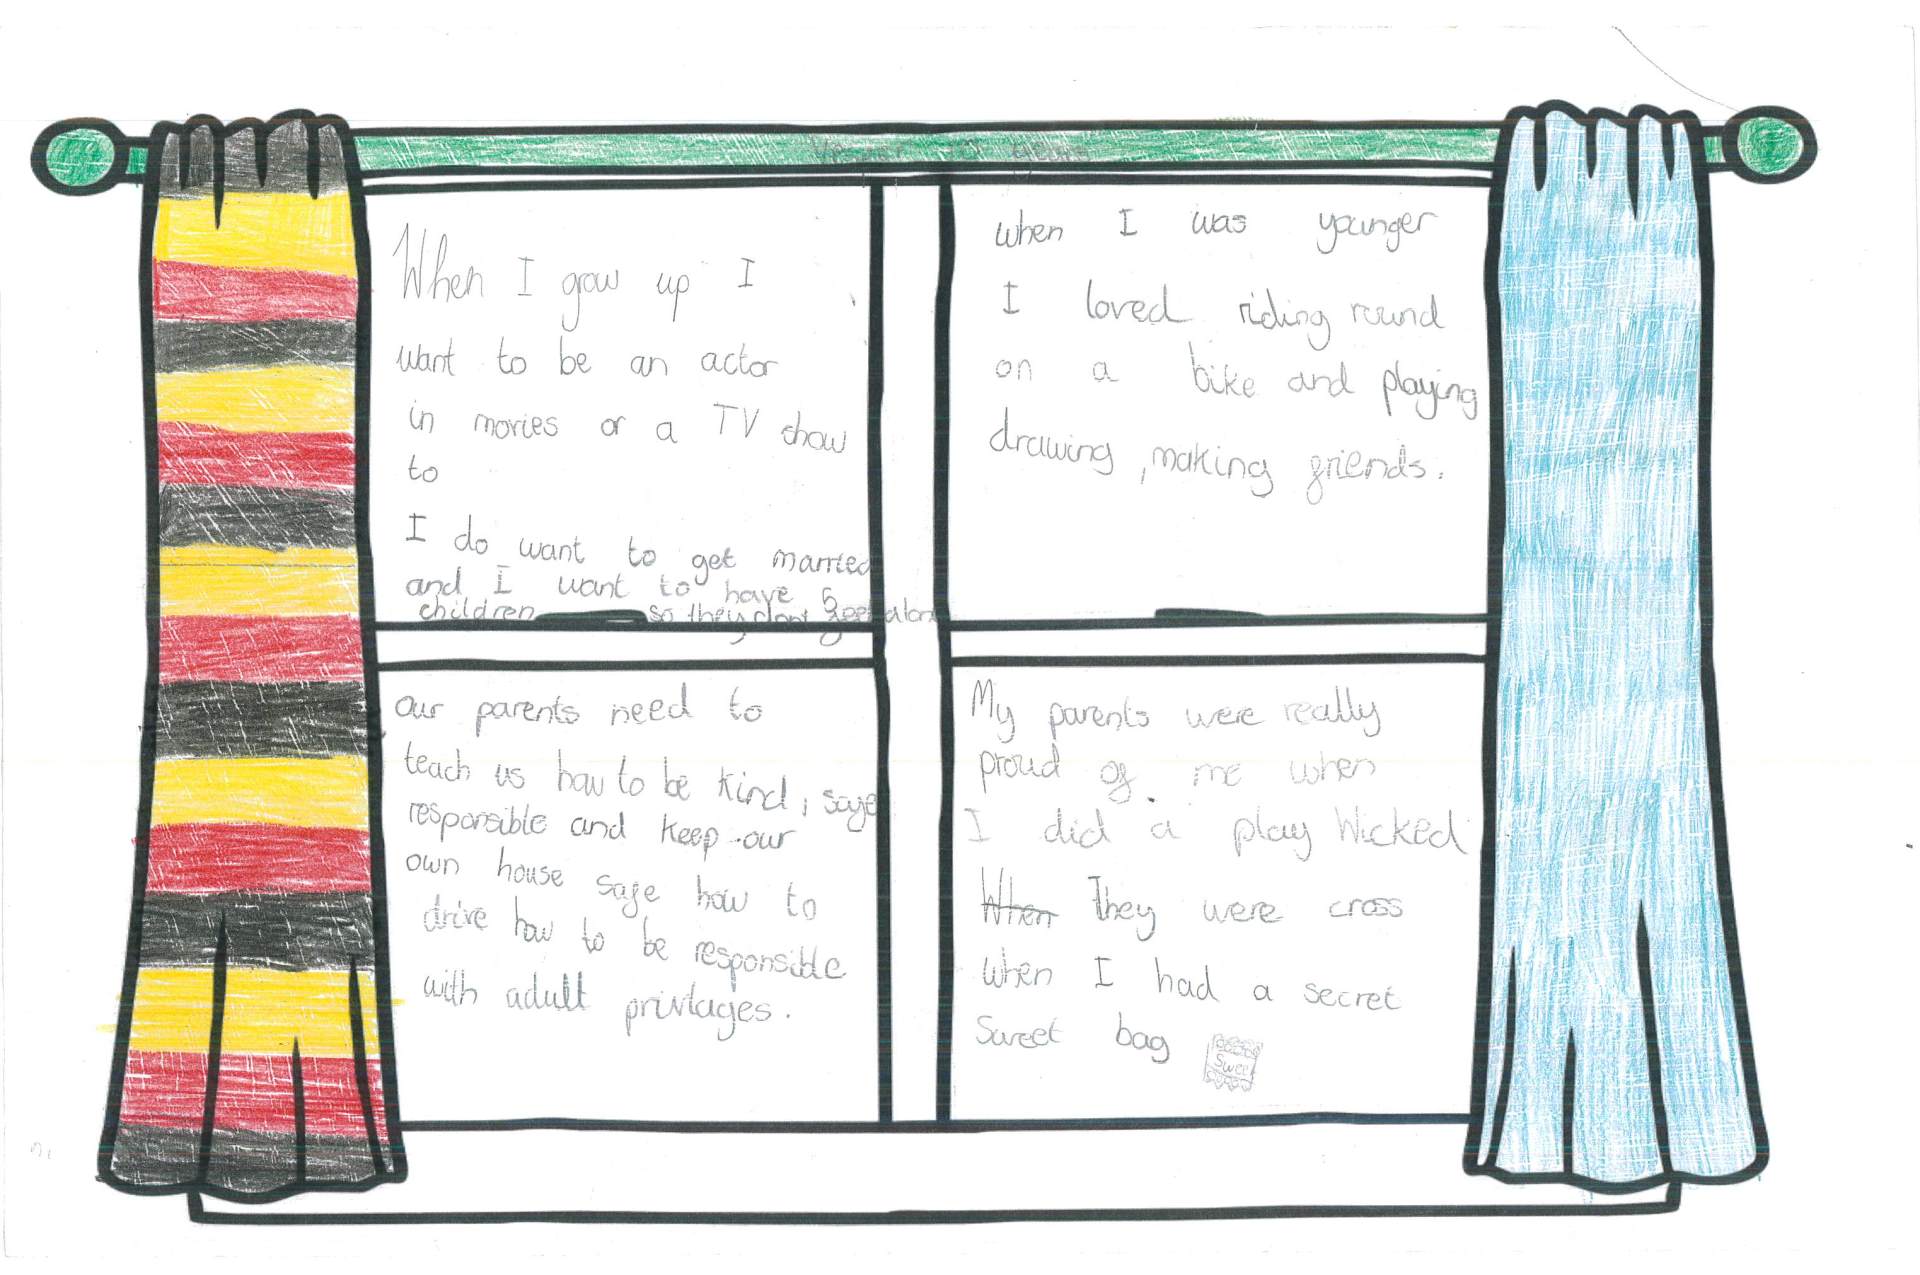 When I grow up I
want to be an actor
in movies or a TV show
to
I do want to get married
and I want to have 5
children so they dont feel alone
when I was younger
I loved riding round
on a bike and playing
drawing, making friends.
our parents need to
teach us how to be kind, safe
responsible and keep our
own house safe how to
drive how to be responsible
with adult privlages.
My parents were really
proud of me when
I did a play Wicked
When They were cross
when I had a secret
Sweet bag
Swee